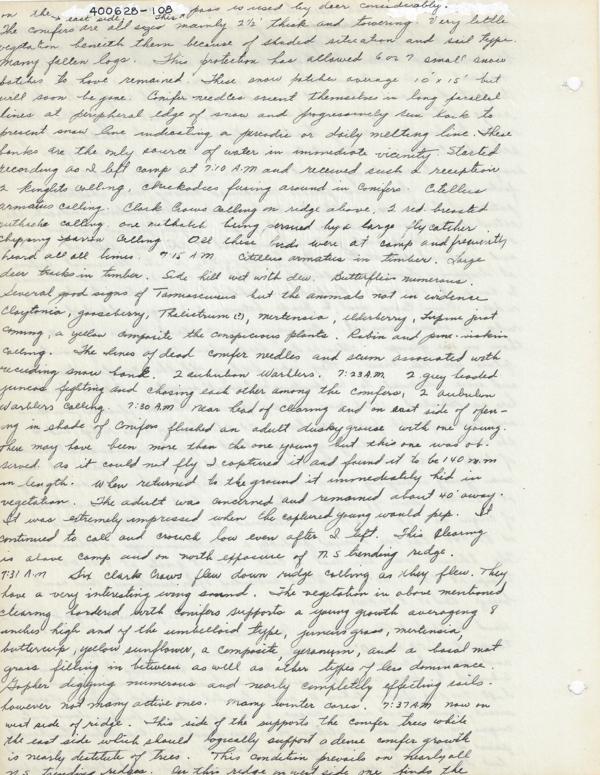 on the east side. This pass is used by deer considerably.
400628-108
The conifers are all sizes mainly 2½' thick and towering. Very little
vegetation beneath them because of shaded situation and soil type.
Many fallen logs. This protection has allowed 6 or 7 small snow
patches to have remained. These snow patches average 10' x 15' but
will soon be gone. Conifer needles orient themselves in long parallel
lines at peripheral edge of snow and progressively run back to
present snow line indicating a periodic or daily melting line. These
banks are the only source of water in immediate vicinity. Started
recording as I left camp at 7:10 A.M and received such a reception
2 kinglets calling, chickadees fusing around in conifers. Citellus
armatus calling. Clark Crows calling on ridge above, 2 red breasted
nuthachs calling, one nuthatch being persued by a large flycatcher.
chipping sparrow calling. All these birds were at camp and frequently
heard all all times. 7:15 A.M Citellus armatus in timber. Large
deer tracks in timber. Side hill wet with dew. Butterflies numerous.
Several good signs of Tamiasciurus but the animals not in evidence
Claytonia, gooseberry, Thalictrum (?), mertensia, elderberry, lupine just
coming, a yellow composite the conspicious plants. Robin and pine-siskin
calling. The lines of dead conifer needles and scum associated with
receeding snow bank. 2 audubon Warblers. 7:23 A.M. 2 grey headed
juncos fighting and chasing each other among the conifers, 2 audubon
Warblers calling. 7:30 A.M near head of clearing and on east side of open-
ing in shade of conifers flushed an adult dusky grouse with one young.
There may have been more than the one young but this one was ob-
served. as it could not fly I captured it and found it to be 140 m.m
in length. When returned to the ground it immediatily hid in
vegetation. The adult was concerned and remained about 40' away.
It was extremely impressed when the captured young would pep. It
continued to call and crouch low even after I left. This clearing
is above camp and on north exposure of N.S trending ridge.
7:31 A.M Six clark Crows flew down ridge calling as they flew. They
have a very interesting wing sound. The vegetation in above mentioned
clearing bordered with conifers supports a young growth averaging 8
inches high and of the umbelloid type, juncus grass, mertensia,
buttercup, yellow sunflower, a composite, geranium, and a basal mat
grass filling in between as well as other types of less dominance.
Gopher digging numerous and nearly completely effecting soils.
however not many active ones. Many winter cores. 7:37 A.M now on
west side of ridge. This side of the supports the conifer trees while
the east side which should logically support a dense conifer growth
is nearly destitute of trees. This condition prevails on nearly all
N.S. trending ridges. On this ridge on west side one finds the